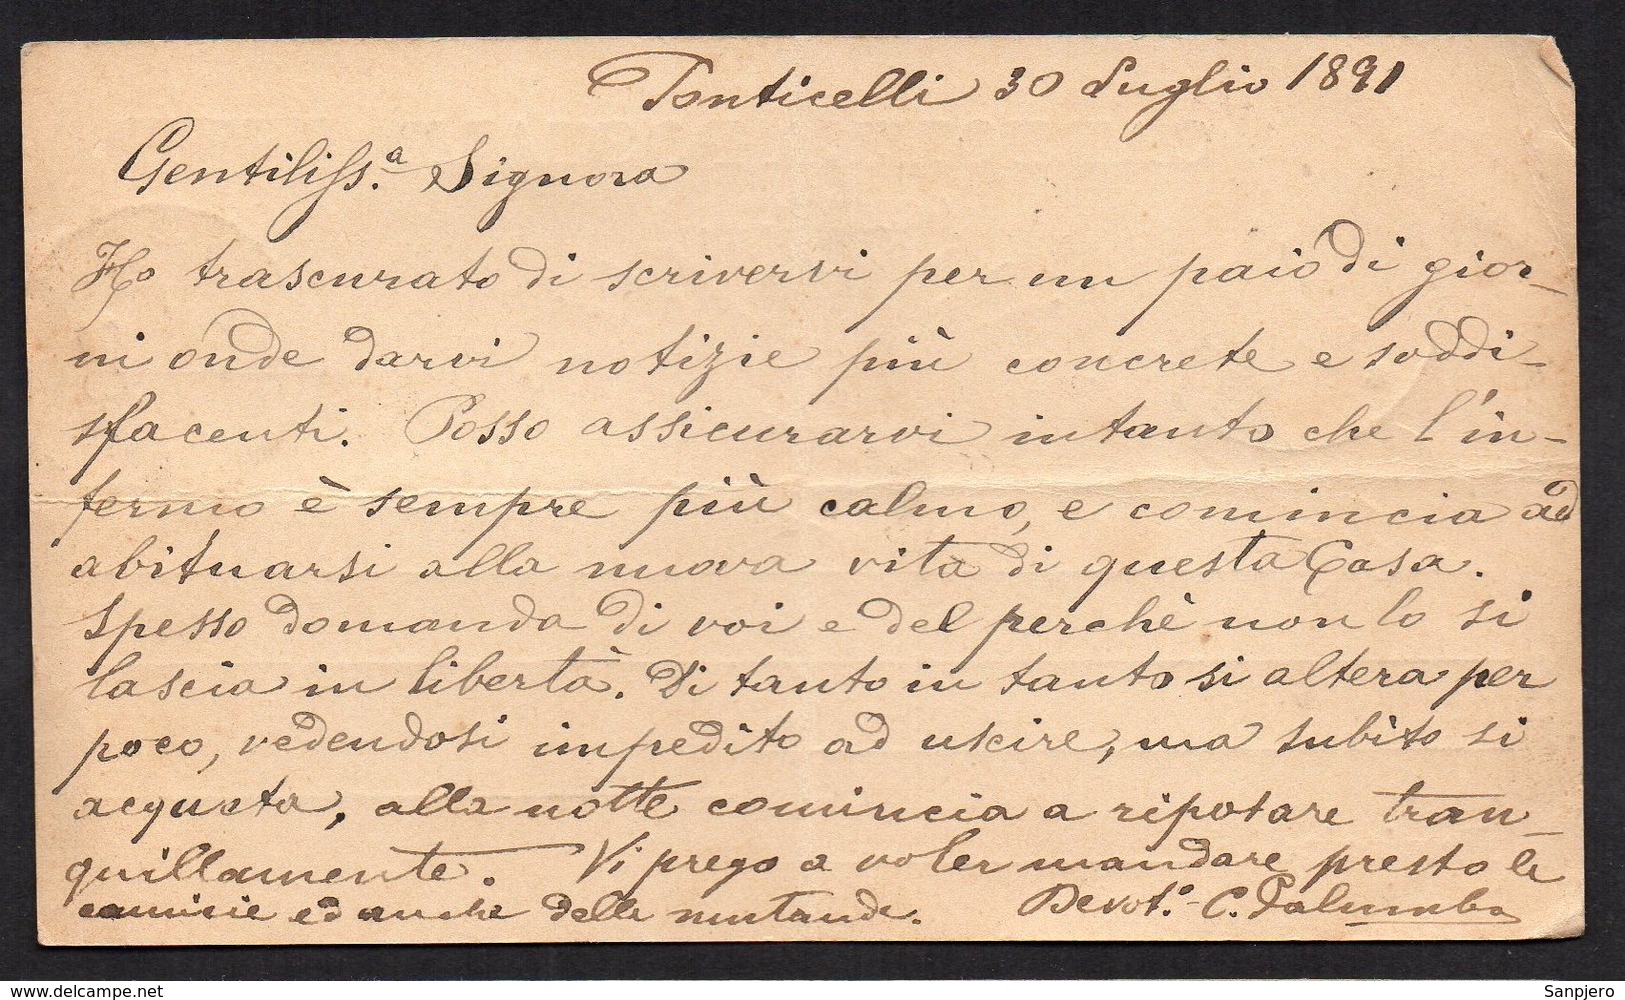 Ponticelli 30 Luglio 1891
Gentiliss.a Signora
Ho trascurato di scrivervi per un paio di gior-
ni onde darvi notizie più concrete e soddi-
sfacenti. Posso assicurarvi intanto che l'in-
fermo è sempre più calmo, e comincia ad
abituarsi alla nuova vita di questa Casa.
Spesso domanda di voi e del perchè non lo si
lascia in libertà. Di tanto in tanto si altera per
poco, vedendosi impedito ad uscire, ma subito si
acqueta, alla notte comincia a riposare tran-
quillamente. Vi prego a voler mandare presto le
camicie ed anche delle mutande. Devot.o C. Palumbo
www.delcampe.net
Sanpjero